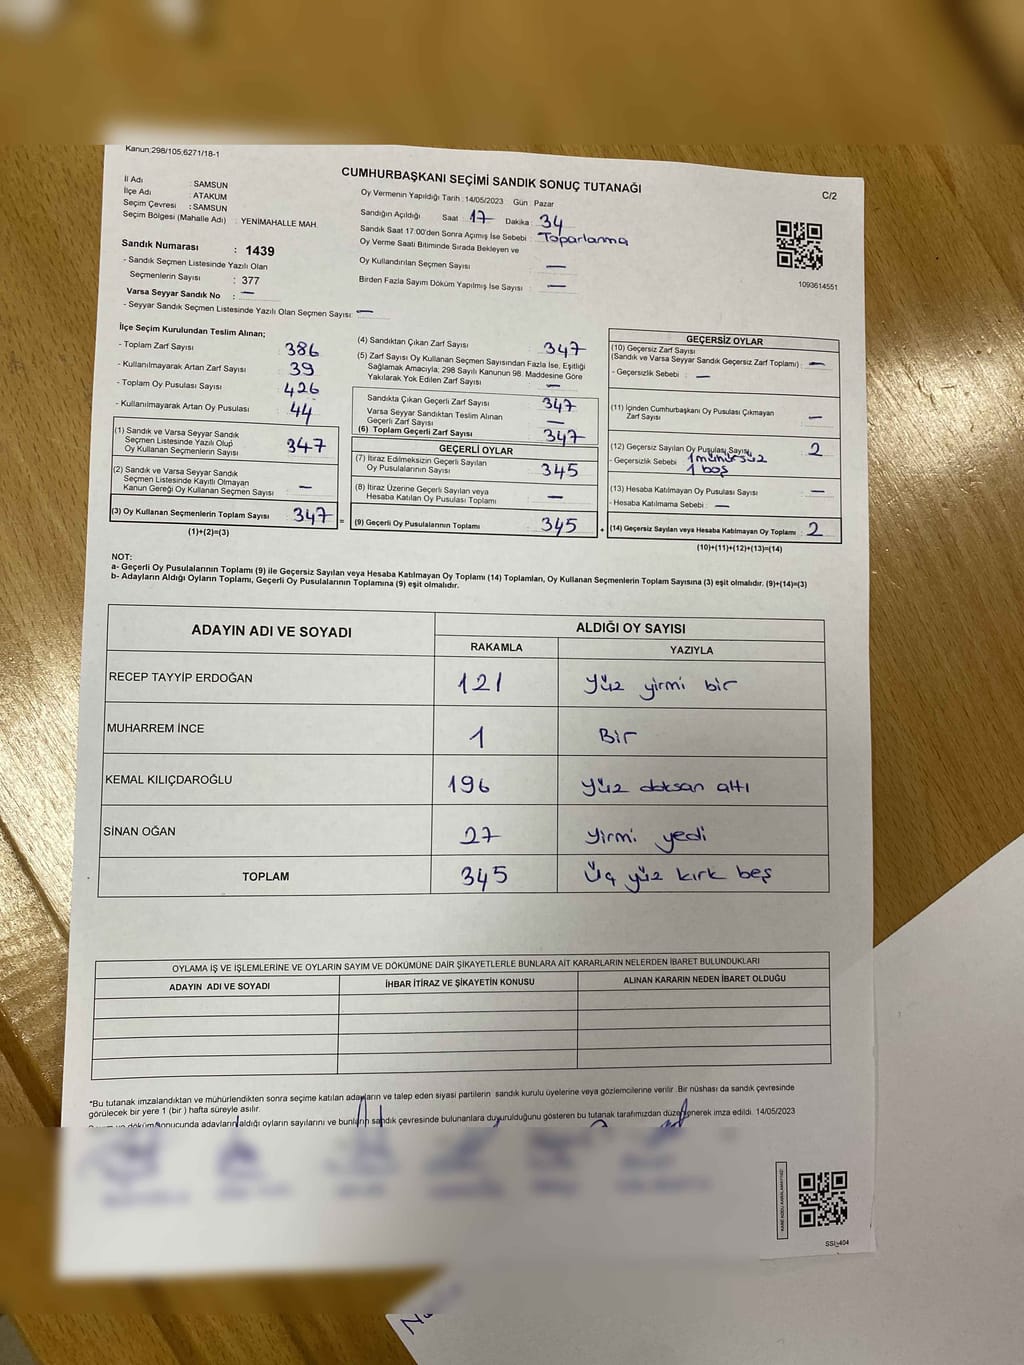 Kanun:298/105,6271/18-1
CUMHURBAŞKANI SEÇİMİ SANDIK SONUÇ TUTANAĞI
C/2
İl Adı : SAMSUN
İlçe Adı : ATAKUM
Seçim Çevresi : SAMSUN
Seçim Bölgesi (Mahalle Adı) : YENİMAHALLE MAH.
Sandık Numarası : 1439
- Sandık Seçmen Listesinde Yazılı Olan
Seçmenlerin Sayısı : 377
Varsa Seyyar Sandık No : —
- Seyyar Sandık Seçmen Listesinde Yazılı Olan Seçmen Sayısı: —
Oy Vermenin Yapıldığı Tarih :14/05/2023 Gün : Pazar
Sandığın Açıldığı Saat : 17 Dakika : 34
Sandık Saat 17:00'den Sonra Açımış İse Sebebi : Toparlanma
Oy Verme Saati Bitiminde Sırada Bekleyen ve
Oy Kullandırılan Seçmen Sayısı —
Birden Fazla Sayım Döküm Yapılmış İse Sayısı : —
1093614551
İlçe Seçim Kurulundan Teslim Alınan;
- Toplam Zarf Sayısı 386
- Kullanılmayarak Artan Zarf Sayısı 39
- Toplam Oy Pusulası Sayısı 426
- Kullanılmayarak Artan Oy Pusulası 44
(1) Sandık ve Varsa Seyyar Sandık
Seçmen Listesinde Yazılı Olup
Oy Kullanan Seçmenlerin Sayısı 347
(2) Sandık ve Varsa Seyyar Sandık
Seçmen Listesinde Kayıtlı Olmayan
Kanun Gereği Oy Kullanan Seçmen Sayısı —
(3) Oy Kullanan Seçmenlerin Toplam Sayısı 347 =
(1)+(2)=(3)
(4) Sandıktan Çıkan Zarf Sayısı 347
(5) Zarf Sayısı Oy Kullanan Seçmen Sayısından Fazla İse, Eşitliği
Sağlamak Amacıyla, 298 Sayılı Kanunun 98. Maddesine Göre
Yakılarak Yok Edilen Zarf Sayısı —
Sandıkta Çıkan Geçerli Zarf Sayısı 347
Varsa Seyyar Sandıktan Teslim Alınan
Geçerli Zarf Sayısı —
(6) Toplam Geçerli Zarf Sayısı 347
GEÇERLİ OYLAR
(7) İtiraz Edilmeksizin Geçerli Sayılan
Oy Pusulalarının Sayısı 345
(8) İtiraz Üzerine Geçerli Sayılan veya
Hesaba Katılan Oy Pusulası Toplamı —
(9) Geçerli Oy Pusulalarının Toplamı 345 +
GEÇERSİZ OYLAR
(10) Geçersiz Zarf Sayısı
(Sandık ve Varsa Seyyar Sandık Geçersiz Zarf Toplamı) —
- Geçersizlik Sebebi : —
(11) İçinden Cumhurbaşkanı Oy Pusulası Çıkmayan
Zarf Sayısı —
(12) Geçersiz Sayılan Oy Pusulası Sayısı 2
- Geçersizlik Sebebi 1 mühürsüz
1 boş
(13) Hesaba Katılmayan Oy Pusulası Sayısı —
- Hesaba Katılmama Sebebi : —
(14) Geçersiz Sayılan veya Hesaba Katılmayan Oy Toplamı : 2
(10)+(11)+(12)+(13)=(14)
NOT:
a- Geçerli Oy Pusulalarının Toplamı (9) ile Geçersiz Sayılan veya Hesaba Katılmayan Oy Toplamı (14) Toplamları, Oy Kullanan Seçmenlerin Toplam Sayısına (3) eşit olmalıdır. (9)+(14)=(3)
b- Adayların Aldığı Oyların Toplamı, Geçerli Oy Pusulalarının Toplamına (9) eşit olmalıdır.
ADAYIN ADI VE SOYADI ALDIĞI OY SAYISI
RAKAMLA YAZIYLA
RECEP TAYYİP ERDOĞAN 121 yüz yirmi bir
MUHARREM İNCE 1 Bir
KEMAL KILIÇDAROĞLU 196 yüz doksan altı
SİNAN OĞAN 27 yirmi yedi
TOPLAM 345 üç yüz kırk beş
OYLAMA İŞ VE İŞLEMLERİNE VE OYLARIN SAYIM VE DÖKÜMÜNE DAİR ŞİKAYETLERLE BUNLARA AİT KARARLARIN NELERDEN İBARET BULUNDUKLARI
ADAYIN ADI VE SOYADI İHBAR İTİRAZ VE ŞİKAYETİN KONUSU ALINAN KARARIN NEDEN İBARET OLDUĞU
*Bu tutanak imzalandıktan ve mühürlendikten sonra seçime katılan adayların ve talep eden siyasi partilerin sandık kurulu üyelerine veya gözlemcilerine verilir. Bir nüshası da sandık çevresinde
görülecek bir yere 1 (bir ) hafta süreyle asılır.
dökümü sonucunda adayların aldığı oyların sayılarını ve bunların sandık çevresinde bulunanlara duyurulduğunu gösteren bu tutanak tarafımızdan düzenlenerek imza edildi. 14/05/2023
SSI-404